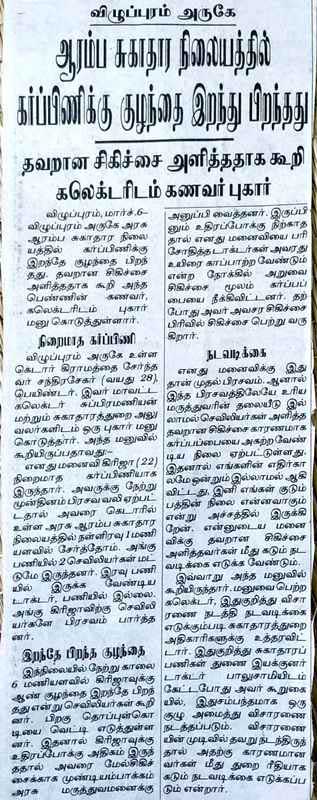 விழுப்புரம் அருகே
ஆரம்ப சுகாதார நிலையத்தில்
கர்ப்பிணிக்கு குழந்தை இறந்து பிறந்தது
தவறான சிகிச்சை அளித்ததாக கூறி
கலெக்டரிடம் கணவர் புகார்
விழுப்புரம், மார்ச்.6–
விழுப்புரம் அருகே அரசு
ஆரம்ப சுகாதார நிலை
யத்தில் கர்ப்பிணிக்கு
இறந்தே குழந்தை பிறந்
தது. தவறான சிகிச்சை
அளித்ததாக கூறி அந்த
பெண்ணின் கணவர்,
கலெக்டரிடம் புகார்
மனு கொடுத்துள்ளார்.
நிறைமாத கர்ப்பிணி
விழுப்புரம் அருகே உள்ள
கெடார் கிராமத்தை சேர்ந்த
வர் சந்திரசேகர் (வயது 28),
பெயிண்டர். இவர் மாவட்ட
கலெக்டர் சுப்பிரமணியன்
மற்றும் சுகாதாரத்துறை அலு
வலர்களிடம் ஒரு புகார் மனு
கொடுத்தார். அந்த மனுவில்
கூறியிருப்பதாவது:–
எனது மனைவி கிரிஜா (22)
நிறைமாத கர்ப்பிணியாக
இருந்தார். அவருக்கு நேற்று
முன்தினம் பிரசவ வலி ஏற்பட்
டதால் அவரை கெடாரில்
உள்ள அரசு ஆரம்ப சுகாதார
நிலையத்தில் நள்ளிரவு 1 மணி
யளவில் சேர்த்தோம். அங்கு
பணியில் 2 செவிலியர்கள் மட்
டுமே இருந்தனர். இரவு பணி
யில் இருக்க வேண்டிய
டாக்டர், பணியில் இல்லை.
அங்கு கிரிஜாவிற்கு செவிலி
யர்களே பிரசவம் பார்த்த
னர்.
இறந்தே பிறந்த குழந்தை
இந்நிலையில் நேற்று காலை
6 மணியளவில் கிரிஜாவுக்கு
ஆண் குழந்தை இறந்தே பிறந்
தது என்று செவிலியர்கள் கூறி
னர். பிறகு தொப்புள்கொ
டியை வெட்டி எடுத்துள்ள
னர். இதனால் கிரிஜாவுக்கு
உதிரப்போக்கு அதிகம் இருந்
ததால் அவரை மேல்சிகிச்
சைக்காக முண்டியம்பாக்கம்
அரசு மருத்துவமனைக்கு
அனுப்பி வைத்தனர். இருப்பி
னும் உதிரப்போக்கு நிற்காத
தால் எனது மனைவியை பரி
சோதித்த டாக்டர்கள் அவரது
உயிரை காப்பாற்ற வேண்டும்
என்ற நோக்கில் அறுவை
சிகிச்சை மூலம் கர்ப்பப்
பையை நீக்கிவிட்டனர். தற்
போது அவர் அவசர சிகிச்சை
பிரிவில் சிகிச்சை பெற்று வரு
கிறார்.
நடவடிக்கை
எனது மனைவிக்கு இது
தான் முதல் பிரசவம். ஆனால்
இந்த பிரசவத்திலேயே உரிய
மருத்துவரின் தலையீடு இல்
லாமல் செவிலியர்கள் அளித்த
தவறான சிகிச்சை காரணமாக
கர்ப்பப்பையை அகற்ற வேண்டி
ய நிலை ஏற்பட்டுள்ளது.
இதனால் எங்களின் எதிர்கா
லமே ஒன்றும் இல்லாமல் ஆகி
விட்டது. இனி எங்கள் குடும்
பத்தின் நிலை என்னவாகும்
என்று அச்சத்தில் இருக்கி
றேன். என்னுடைய மனை
விக்கு தவறான சிகிச்சை
அளித்தவர்கள் மீது கடும் நட
வடிக்கை எடுக்க வேண்டும்.
இவ்வாறு அந்த மனுவில்
கூறியிருந்தார். மனுவைபெற்ற
கலெக்டர், இதுகுறித்து விசா
ரணை நடத்தி நடவடிக்கை
எடுக்கும்படி சுகாதாரத்துறை
அதிகாரிகளுக்கு உத்தரவிட்
டார். இதுகுறித்து சுகாதாரப்
பணிகள் துணை இயக்குனர்
டாக்டர் பாலுசாமியிடம்
கேட்டபோது அவர் கூறுகை
யில், இதுசம்பந்தமாக ஒரு
குழு அமைத்து விசாரணை
நடத்தப்படும். விசாரணை
யின் முடிவில் தவறு நடந்திருந்
தால் அதற்கு காரணமான
வர்கள் மீது துறை ரீதியாக
கடும் நடவடிக்கை எடுக்கப்ப
டும் என்றார்.